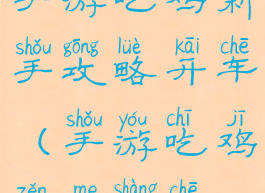 手游吃鸡新
shǒu gōng lüè kāi chē
手攻略开车
shǒu yóu chī jī
（手游吃鸡
zěn me shàng chē